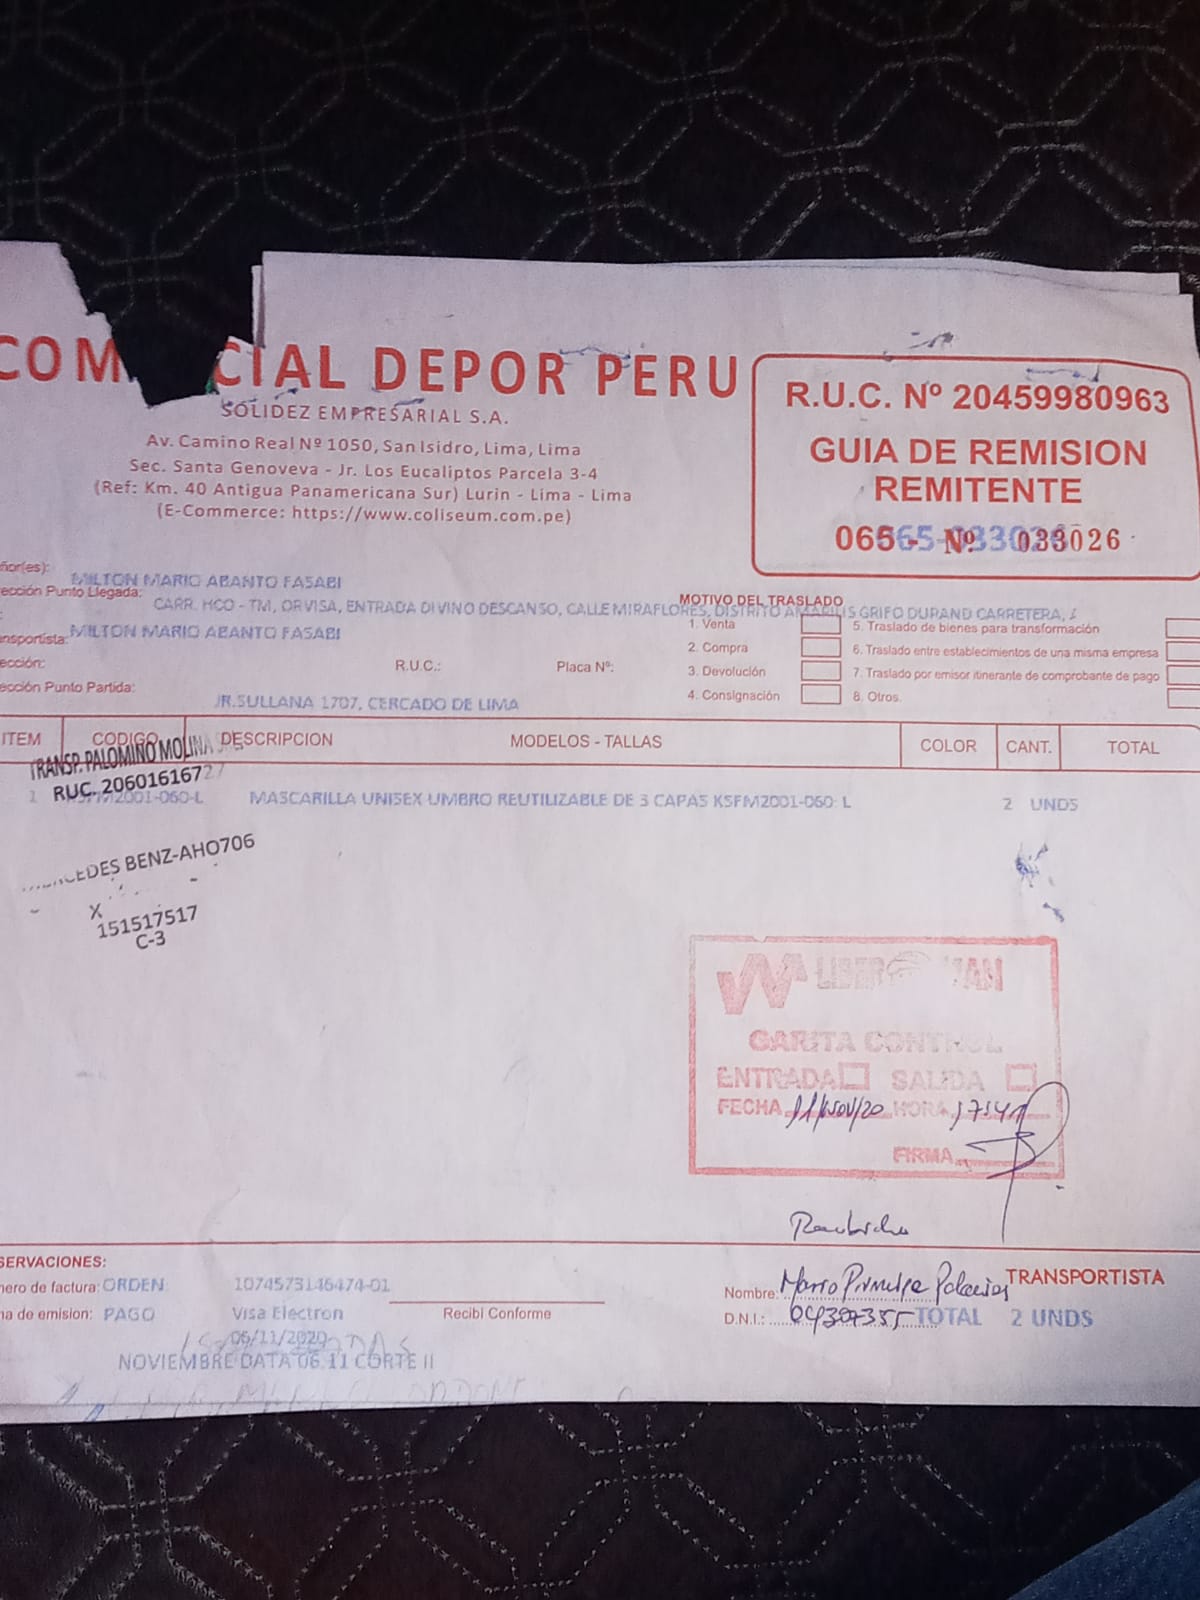 COM CIAL DEPOR PERU
SOLIDEZ EMPRESARIAL S.A.
Av. Camino Real Nº 1050, San Isidro, Lima, Lima
Sec. Santa Genoveva - Jr. Los Eucaliptos Parcela 3-4
(Ref: Km. 40 Antigua Panamericana Sur) Lurin - Lima - Lima
(E-Commerce: https://www.coliseum.com.pe)
R.U.C. Nº 20459980963
GUIA DE REMISION
REMITENTE
065- Nº 033026
065-033026
ñor(es): MILTON MARIO ABANTO FASABI
ección Punto Llegada: CARR. HCO - TM, ORVISA, ENTRADA DIVINO DESCANSO, CALLE MIRAFLORES, DISTRITO AMARILIS GRIFO DURAND CARRETERA,
ansportista: MILTON MARIO ABANTO FASABI
ección: R.U.C.: Placa Nº:
ección Punto Partida: JR.SULLANA 1707, CERCADO DE LIMA
MOTIVO DEL TRASLADO
1. Venta
2. Compra
3. Devolución
4. Consignación
5. Traslado de bienes para transformación
6. Traslado entre establecimientos de una misma empresa
7. Traslado por emisor itinerante de comprobante de pago
8. Otros.
ITEM CODIGO DESCRIPCION MODELOS - TALLAS COLOR CANT. TOTAL
TRANSP. PALOMINO MOLINA
RUC. 20601616727
1 KSFM2001-060-L MASCARILLA UNISEX UMBRO REUTILIZABLE DE 3 CAPAS KSFM2001-060: L 2 UNDS
MERCEDES BENZ-AHO706
X
151517517
C-3
GARITA CONTROL
ENTRADA SALIDA
FECHA 11/Nov/20 HORA 17:54
FIRMA
SERVACIONES:
nero de factura: ORDEN 1074573146474-01
ha de emision: PAGO Visa Electron
06/11/2020
NOVIEMBRE DATA 06.11 CORTE II
Recibí Conforme
Nombre: Mario
D.N.I.: 04307355
TRANSPORTISTA
TOTAL 2 UNDS